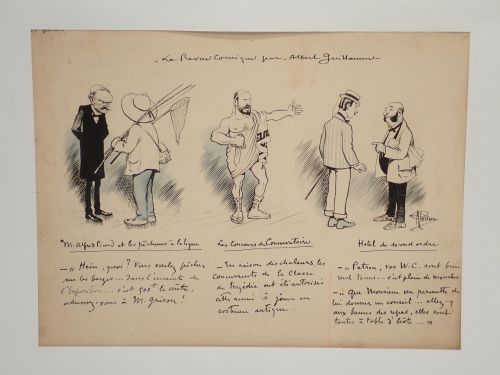 La Revue Comique par Albert Guillaume
M. Alfred Picard et les pêcheurs à la ligne
Les Concours du Conservatoire
Hotel de second ordre
— "Hein, quoi ? Vous voulez pêcher
sur les berges... Dans l'enceinte de
l'Exposition... c'est 500 f. le mètre,
adressez-vous à M. Grison !
— En raison des chaleurs les
concurrents de la Classe
de Tragédie ont été autorisés
cette année à jouer en
costume antique.
— "Patron, vos W.C. sont bien
mal tenus... c'est plein de mouches
— "Que Monsieur me permette de
lui donner un conseil... allez-y
aux heures des repas, elles sont
toutes à table d'hôte..."